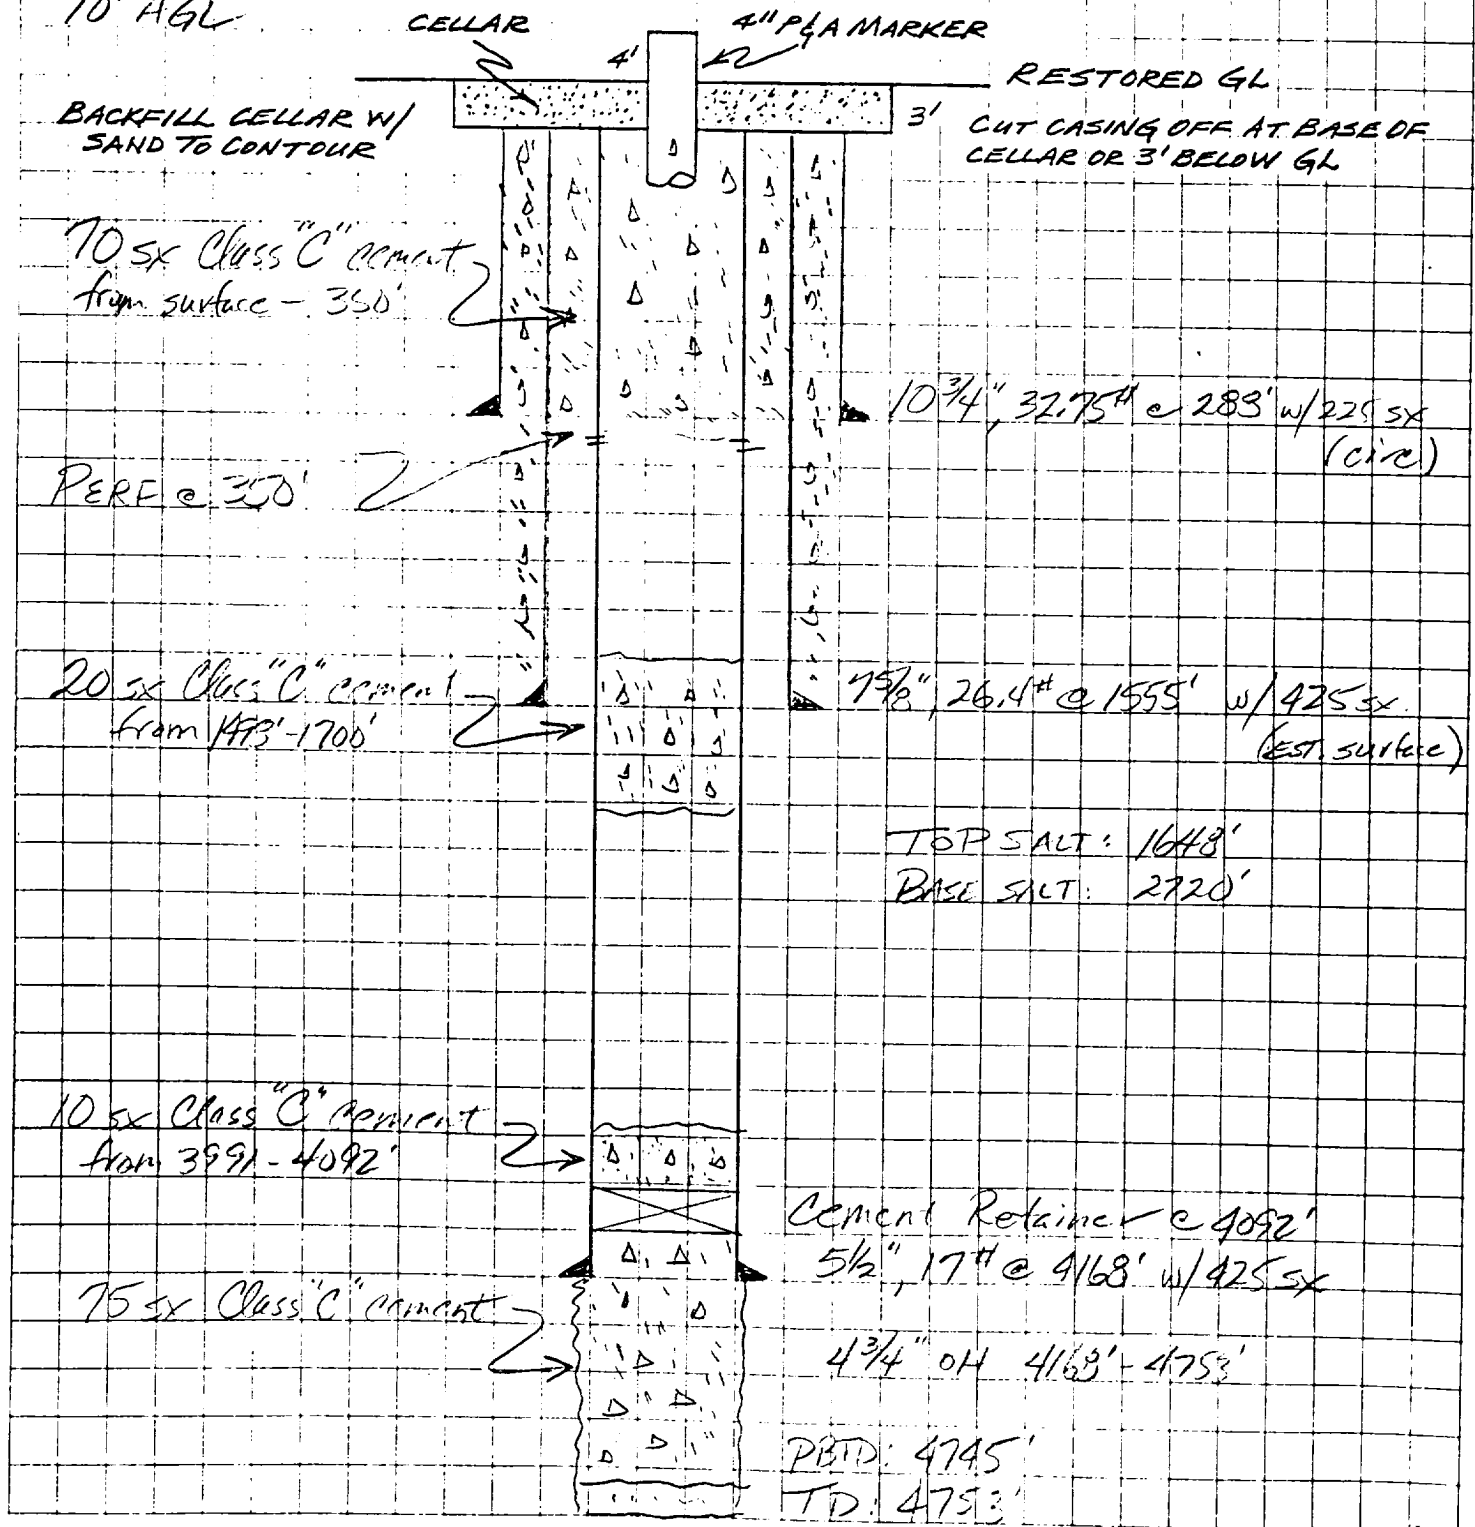 10' AGL
CELLAR
4" P&A MARKER
4'
RESTORED GL
BACKFILL CELLAR W/
SAND TO CONTOUR
3'
CUT CASING OFF AT BASE OF
CELLAR OR 3' BELOW GL
70 sx Class "C" cement
from surface - 350'
10 3/4", 32.75# @ 283' w/ sx
(circ)
PERF @ 350'
20 sx Class "C" cement
from 1493'-1700'
7 5/8", 26.4# @ 1555' w/ 425 sx
(EST. surface)
TOP SALT: 1648'
BASE SALT: 2720'
10 sx Class "C" cement
from 3991-4092'
Cement Retainer @ 4092'
5 1/2", 17# @ 4168' w/ 425 sx
75 sx Class "C" cement
4 3/4" OH 4168'-4753'
PBTD: 4745'
TD: 4753'